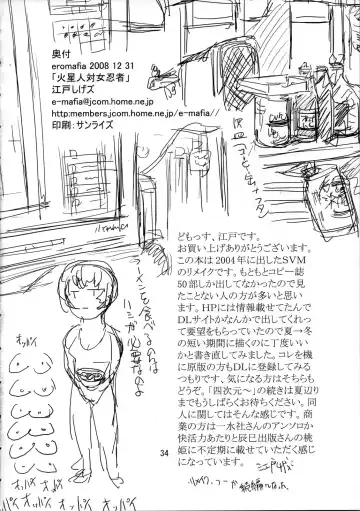 奥付
eromafia 2008 12 31
「火星人対女忍者」
江戸しげズ
e-mafia@jcom.home.ne.jp
http:members.jcom.home.ne.jp/e-mafia//
印刷:サンライズ
どもっす、江戸です。
お買い上げありがとうございます。
この本は2004年に出したSVM
のリメイクです。もともとコピー誌
50部しか出してなかったので見
たことない人の方が多いと思い
ます。HPには情報載せてたんで
DLサイトかなんかで出してくれっ
て要望をもらっていたので夏→冬
の短い期間に描くのに丁度いい
かと書き直してみました。コレを機
に原版の方もDLに登録してみる
つもりです、気になる方はそちらも
どうぞ。「四次元～」の続きは夏辺り
までもうしばらくお待ちください。同
人に関してはそんな感じです。商
業の方は一水社さんのアンソロか
快活力あたりと辰巳出版さんの桃
姫に不定期に載せていただく感じ
になっています。
江戸しげズ
ラーメンを食べるのは
ハシが必要なのよ
オッパイ
オッパイ
オッパイ
オッパイ
オッパイ
34